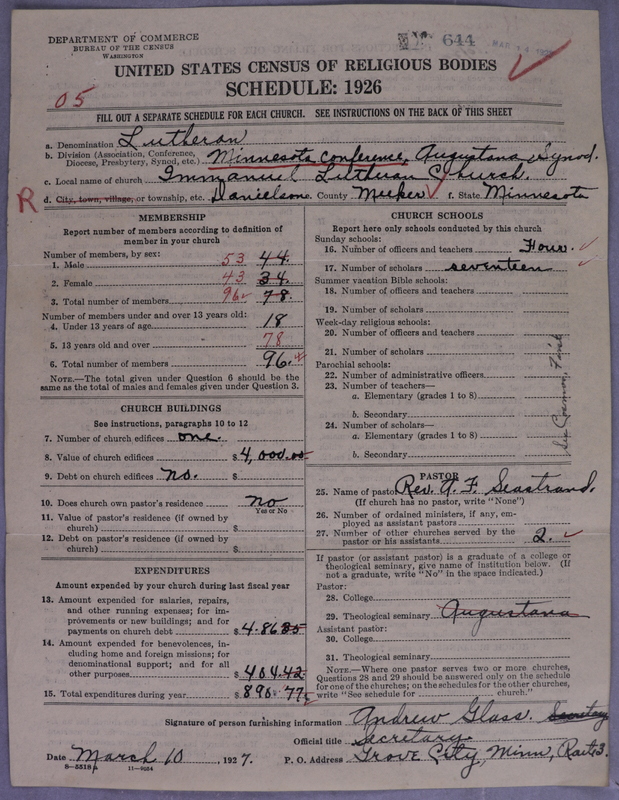 DEPARTMENT OF COMMERCE
BUREAU OF THE CENSUS
WASHINGTON
644
UNITED STATES CENSUS OF RELIGIOUS BODIES
SCHEDULE: 1926
05
FILL OUT A SEPARATE SCHEDULE FOR EACH CHURCH. SEE INSTRUCTIONS ON THE BACK OF THIS SHEET
a. Denomination Lutheran
b. Division (Association, Conference, Diocese, Presbytery, Synod, etc.) Minnesota Conference, Augustana Synod.
c. Local name of church Immanuel Lutheran Church.
R d. City, town, village, or township, etc. Danielson. County Meeker f. State Minnesota
MEMBERSHIP
Report number of members according to definition of
member in your church
Number of members, by sex:
1. Male 53 44
2. Female 43 34
3. Total number of members 96 78.
Number of members under and over 13 years old:
4. Under 13 years of age 18
5. 13 years old and over 78
6. Total number of members 96.
NOTE.—The total given under Question 6 should be the
same as the total of males and females given under Question 3.
CHURCH BUILDINGS
See instructions, paragraphs 10 to 12
7. Number of church edifices one.
8. Value of church edifices $ 4,000.00
9. Debt on church edifices no. $
10. Does church own pastor's residence no
Yes or No
11. Value of pastor's residence (if owned by
church) $
12. Debt on pastor's residence (if owned by
church) $
EXPENDITURES
Amount expended by your church during last fiscal year
13. Amount expended for salaries, repairs,
and other running expenses; for im-
provements or new buildings; and for
payments on church debt $ 486 35
14. Amount expended for benevolences, in-
cluding home and foreign missions; for
denominational support; and for all
other purposes $ 404.42
15. Total expenditures during year $ 890.77
CHURCH SCHOOLS
Report here only schools conducted by this church
Sunday schools:
16. Number of officers and teachers Four.
17. Number of scholars seventeen
Summer vacation Bible schools:
18. Number of officers and teachers
19. Number of scholars
Week-day religious schools:
20. Number of officers and teachers
21. Number of scholars
Parochial schools:
22. Number of administrative officers
23. Number of teachers—
a. Elementary (grades 1 to 8)
b. Secondary
24. Number of scholars—
a. Elementary (grades 1 to 8)
b. Secondary
PASTOR
25. Name of pastor Rev. A. F. Seastrand.
(If church has no pastor, write "None")
26. Number of ordained ministers, if any, em-
ployed as assistant pastors
27. Number of other churches served by the
pastor or his assistants 2.
If pastor (or assistant pastor) is a graduate of a college or
theological seminary, give name of institution below. (If
not a graduate, write "No" in the space indicated.)
Pastor:
28. College
29. Theological seminary Augustana
Assistant pastor:
30. College
31. Theological seminary
NOTE.—Where one pastor serves two or more churches,
Questions 28 and 29 should be answered only on the schedule
for one of the churches; on the schedules for the other churches,
write "See schedule for church."
Signature of person furnishing information Andrew Glass. Secretary
Official title Secretary.
Date March 10, 1927. P. O. Address Grove City, Minn, Route 3.
S-5518a 11-9034